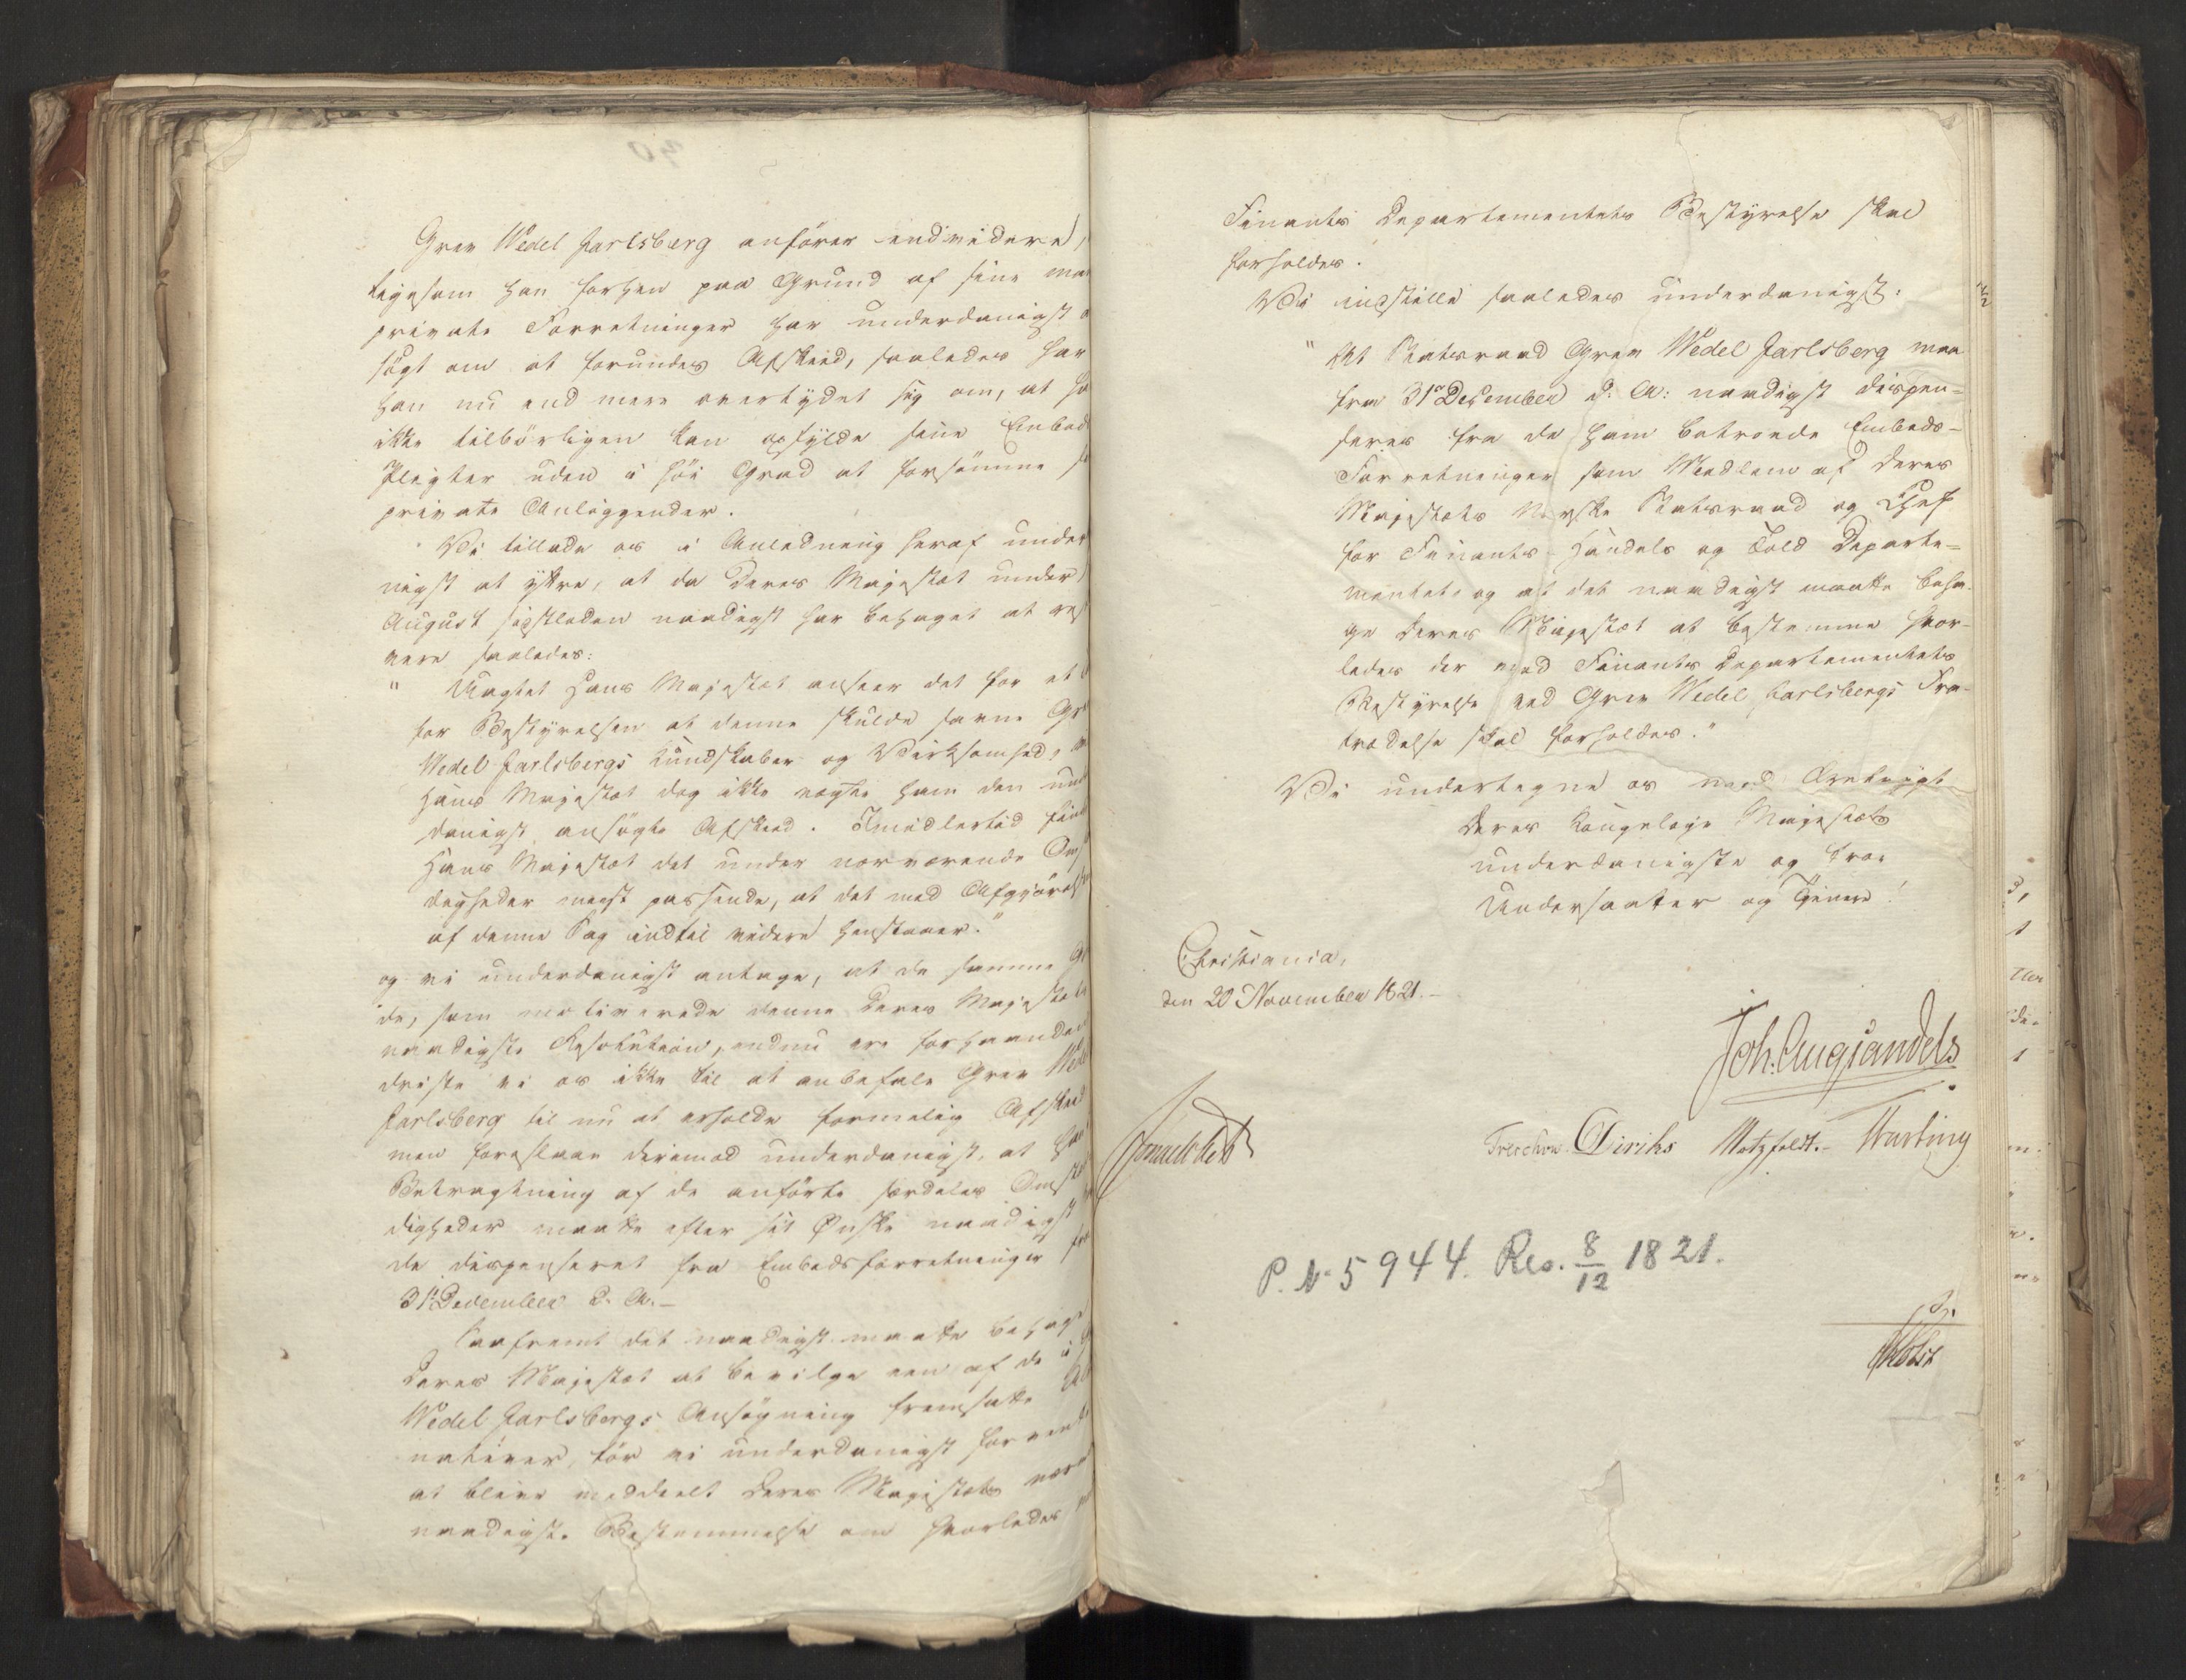 Grev Wedel Jarlsberg anfører endvidere,
ligesom han forhen paa Grund af sine
private Forretninger har underdanigst
søgt om at forundes Afskeed, saaledes har
han nu end mere overtydet sig om, at
ikke tilbørligen kan opfylde sine Embeds
Pligter uden i høi Grad at forsømme
private Anliggender.
Vi tillade os i Anledning heraf under
nigst at yttre, at da Deres Majestæt under
August sidstleden naadigst har behaget at
vere saaledes:
" Uagtet Hans Majestæt anseer det for et
for Bestyrelsen at denne skulde savne
Wedel Jarlsbergs Kundskaber og Virksomhed,
Hans Majestæt dog ikke negte ham den
danigst ansøgte Afskeed. Imidlertid
Hans Majestæt det under nærværende Om
digheder meest passende, at det med Afgjørelsen
af denne Sag indtil videre henstaaer."
og vi underdanigst antage, at de samme
de, som motiverede denne Deres Majestæts
naadigste Resolution, endnu ere forhaanden
driste vi os ikke til at anbefale Grev Wedel
Jarlsberg til nu at erholde formelig Afskeed
men foreslaae derimod underdanigst, at han
Betragtning af de anførte særdeles Omstæn
digheder maatte efter sit Ønske naadigst
de dispenseret fra Embedsforretninger fra
31 December d. A.-
Saafremt det naadigst maatte behage
Deres Majestæt at bevilge een af de i
Wedel Jarlsbergs Ansøgning fremsatte
nativer, tør vi underdanigst forvente
at blive meddeelt Deres Majestæts
naadigste Bestemmelse om hvorledes
Finants Departementets Bestyrelse skal
forholdes.
Vi indstille saaledes underdanigst:
" At Statsraad Grev Wedel Jarlsberg maa
fra 31 December d: A: naadigst dispen=
seres fra de ham betroede Embeds-
Forretninger som Medlem af Deres
Majestæts Norske Statsraad og Chef
for Finants- Handels og Told Departe=
mentet og at det naadigst maatte beha-
ge Deres Majestæt at bestemme hvor-
ledes der med Finants Departementets
Bestyrelse ved Grev Wedel Jarlsbergs Fra-
trædelse skal forholdes."
Vi undertegne os med Ærefrygt
Deres Kongelige Majestæts
underdanigste og troe
Undersaatter og Tjenere!
Christiania,
den 20 November 1821.-
Joh: Aug: Sandels
Treschow. Diriks Motzfeldt.-
P. N. 5944. Res. 8/12 1821.
Holst